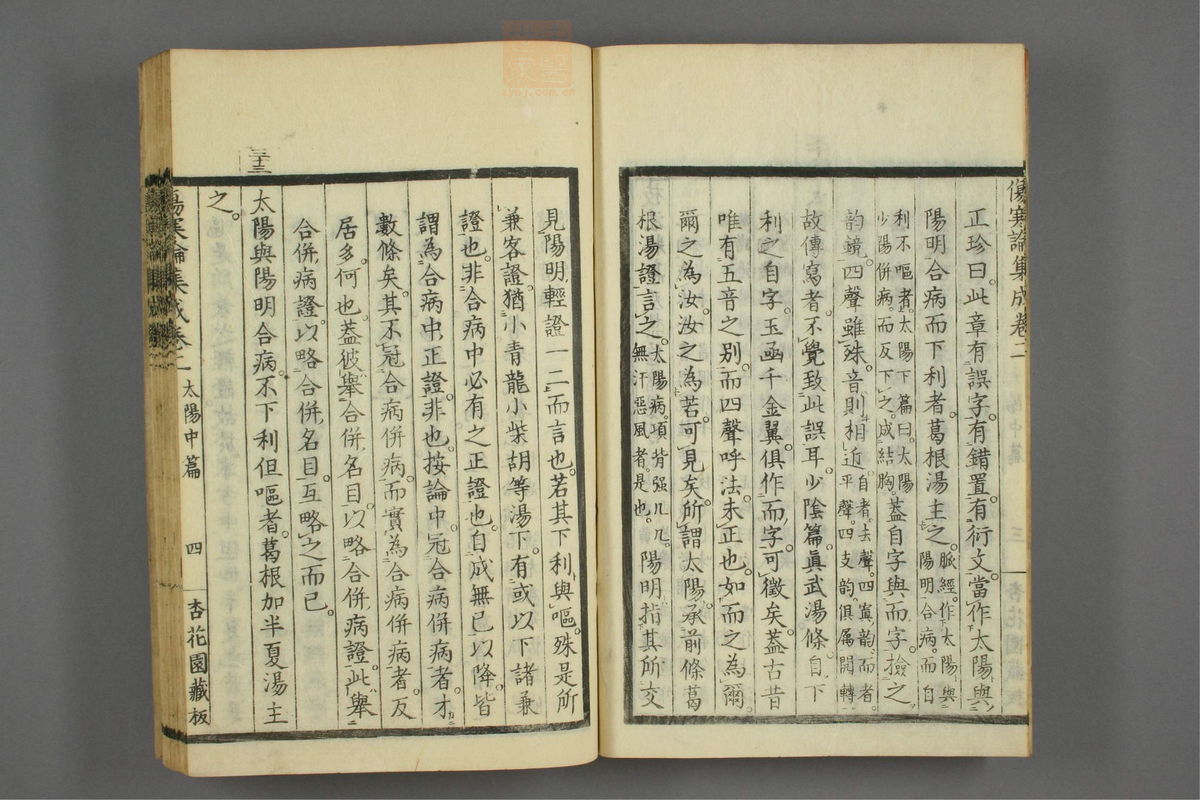 傷寒論集成卷二
正珍曰。此章有誤字。有錯置。有衍文。當作太陽與
陽明合病而下利者。葛根湯主之。脈經。作太陽與陽明合病。而自
利不嘔者。太陽下篇曰。太陽少陽併病。而反下之。成結胸。蓋自字與而字。撿之
韵鏡。四聲雖殊。音則相近。自者。去聲。四寘韵。而者。平聲。四支韵。俱屬開轉。
故傳寫者。不覺致此誤耳。少陰篇。眞武湯條。自下
利之自字。玉函千金翼。俱作而字。可徵矣。蓋古昔
唯有五音之別。而四聲呼法。未正也。如而之為爾。
爾之為汝。汝之為若。可見矣。所謂太陽。承前條葛
根湯證言之。太陽病。項背强几几。無汗惡風者。是也。陽明。指其所交
見陽明。輕證一二而言也。若其下利。與嘔。殊是所
兼客證。猶小青龍小柴胡等湯下。有或以下諸兼
證也。非合病中必有之正證也。自成無已以降。皆
謂為合病中。正證。非也。按論中。冠合病併病者。才
數條矣。其不冠合病併病。而實為合病併病者。反
居多何也。蓋彼舉合併名目。以略合併病證。此舉
合併病證。以略合併名目。互略之而已。
太陽與陽明合病。不下利但嘔者。葛根加半夏湯主
之。
傷寒論集成卷二 太陽中篇 四 杏花園藏板
三十三